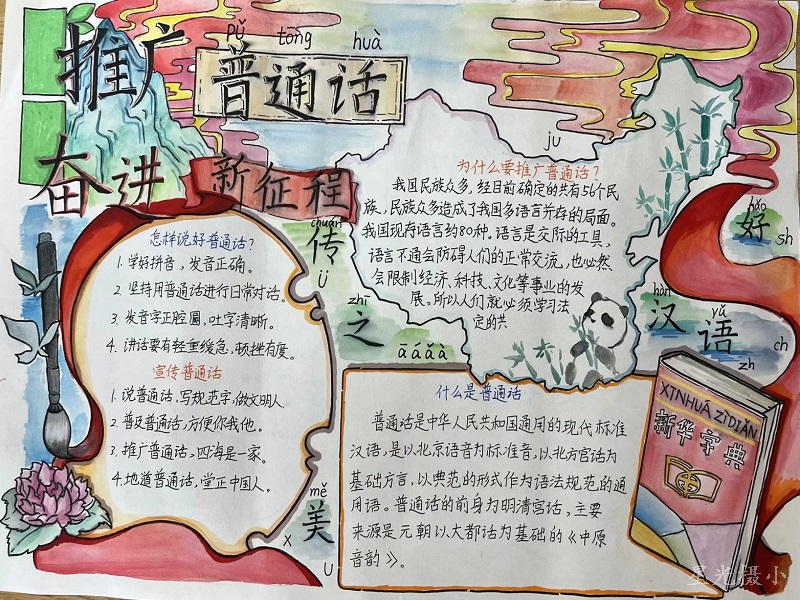 推广
pǔ tōng huà
普通话
奋进
新征程
怎样说好普通话?
1. 学好拼音,发音正确。
2. 坚持用普通话进行日常对话。
3. 发音字正腔圆,吐字清晰。
4. 讲话要有轻重缓急,顿挫有度。
宣传普通话
1. 说普通话,写规范字,做文明人.
2. 普及普通话,方便你我他。
3. 推广普通话,四海是一家。
4. 地道普通话,堂正中国人。
chuán
传
ü
zhī
之
ā á ǎ à
měi
美
x
u
ju
为什么要推广普通话?
我国民族众多,经目前确定的共有56个民
族,民族众多造成了我国多语言并存的局面。
我国现存语言约80种。语言是交际的工具,
语言不通会防碍人们的正常交流,也必然
会限制经济、科技、文化等事业的发
展。所以人们就必须学习法
定的共
hǎo
好
sh
hàn
汉
yǔ
语
ch
zh
什么是普通话
普通话是中华人民共和国通用的现代标准
汉语,是以北京语音为标准音,以北方官话为
基础方言,以典范的形式作为语法规范的通
用语。普通话的前身为明清官话,主要
来源是元朝以大都话为基础的《中原
音韵》。
XINHUÁ ZÌDIǍN
新华字典
星光摄小